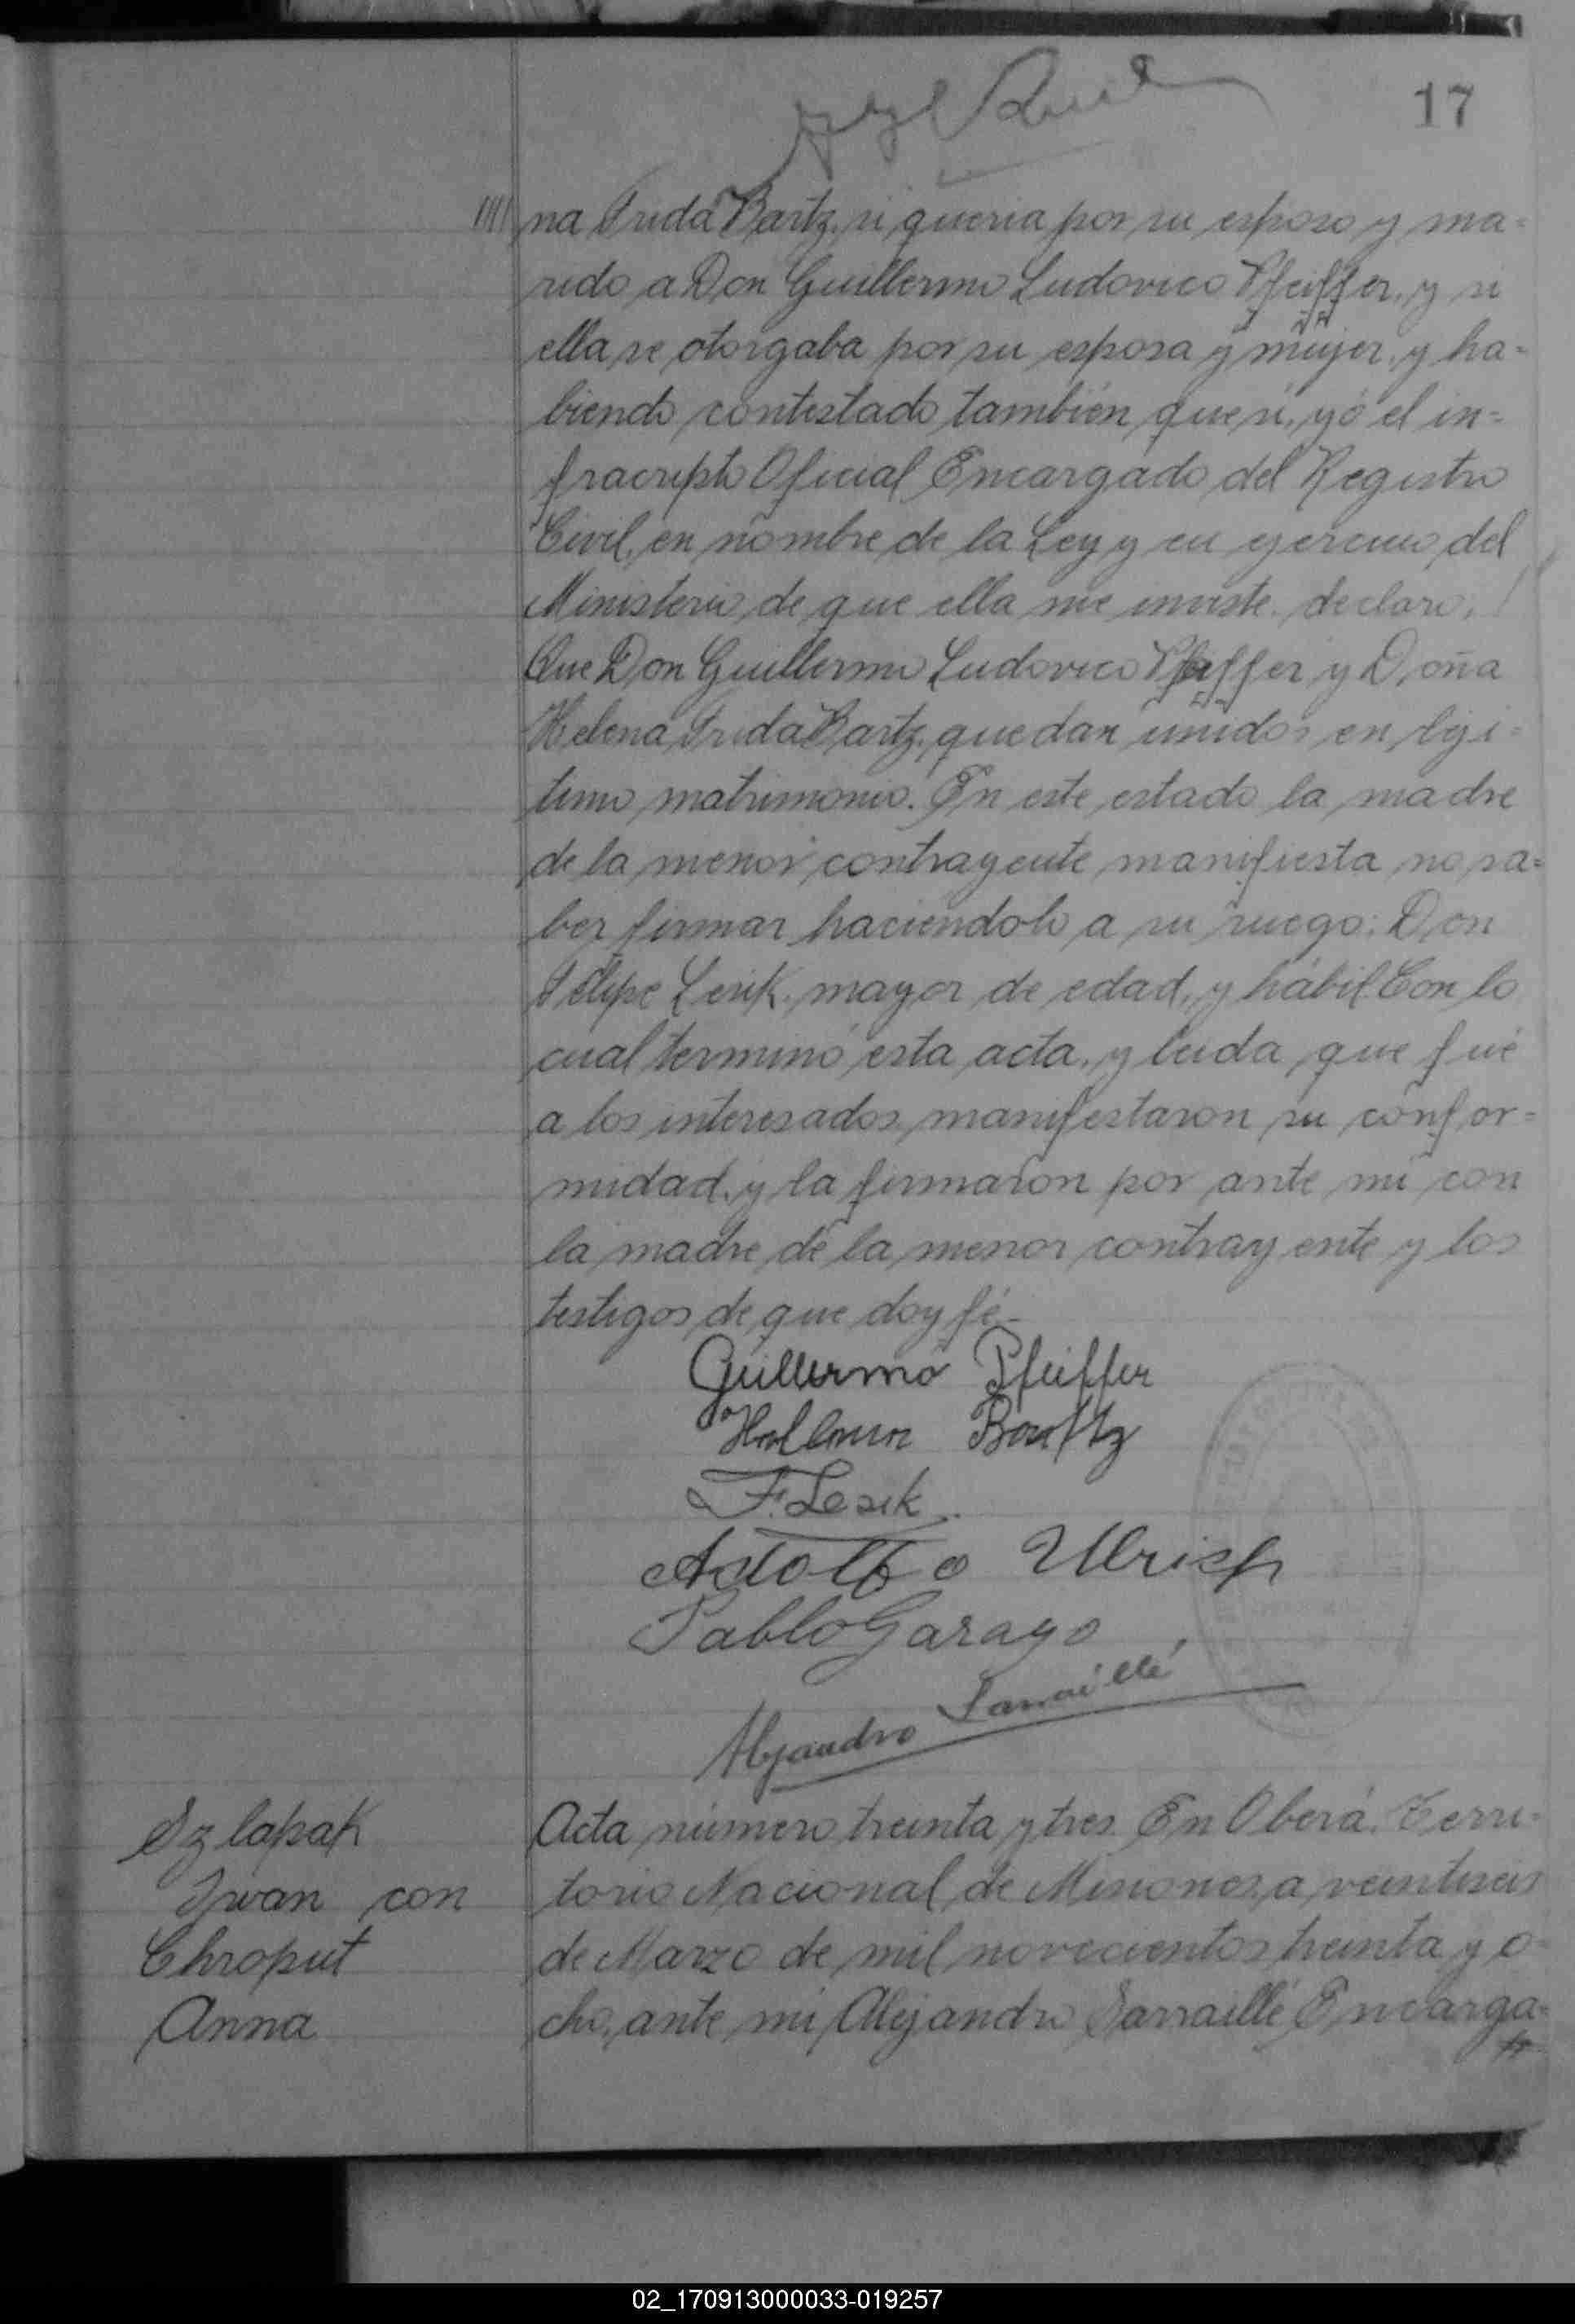 17
na Frida Bartz, si queria por su esposo y ma-
rido a Don Guillermo Ludovico Pfeiffer, y si
ella se otorgaba por su esposa y mujer, y ha-
biendo contestado también que si, yó el in-
fracripto Oficial Encargado del Registro
Civil, en nombre de la Ley y en ejercicio del
Ministerio de que ella me inviste, declaro:
Que Don Guillermo Ludovico Pfeiffer y Doña
Helena Frida Bartz, quedan unidos en legi-
timo matrimonio. En este estado la madre
de la menor contrayente manifiesta no sa-
ber firmar haciendolo a su ruego: Don
Felipe Lesik, mayor de edad, y hábil. Con lo
cual terminó esta acta, y leida que fué
a los interesados manifestaron su confor-
midad, y la firmaron por ante mi con
la madre de la menor contrayente y los
testigos de que doy fé.-
Guillermo Pfeiffer
Bartz
F. Lesik
Adolfo Ulrich
Pablo Garayo
Alejandro Sarraillé
Szlapak
Iwan con
Chroput
Anna
Acta número treinta y tres. En Oberá, Terri-
torio Nacional de Misiones, a veintiseis
de Marzo de mil novecientos treinta y o-
cho, ante mi Alejandro Sarraillé Encarga-
02_170913000033-019257